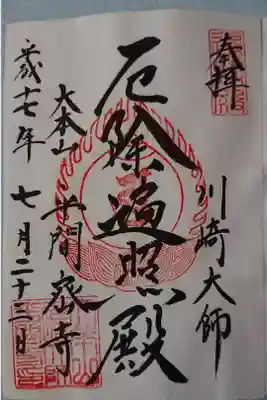 奉拝
川崎大師
厄除遍照殿
大本山 平間密寺
平成十七年 七月二十三日